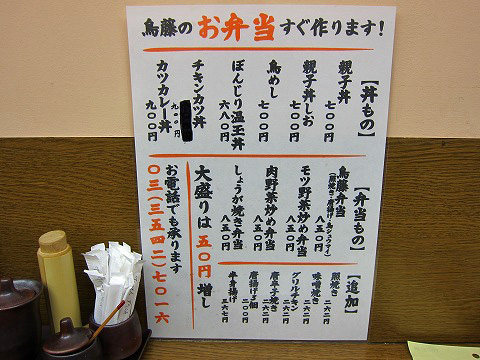 鳥藤のお弁当すぐ作ります!
【丼もの】
親子丼 七〇〇円
親子丼しお 七〇〇円
鳥めし 七〇〇円
ぼんじり温玉丼 六八〇円
チキンカツ丼 九〇〇円
カツカレー丼 九〇〇円
【弁当もの】
鳥藤弁当 八五〇円
(照焼き・唐揚げ・鳥シュウマイ)
モツ野菜炒め弁当 八五〇円
肉野菜炒め弁当 八五〇円
しょうが焼き弁当 八五〇円
【追加】
照焼き 二六二
味噌焼き 二六二
グリルチキン 二六二
唐辛子焼き 二六二
唐揚げ3個 二〇〇
半身揚げ 三六七円
大盛りは五〇円増し
お電話でも承ります
〇三(三五四二)七〇一六